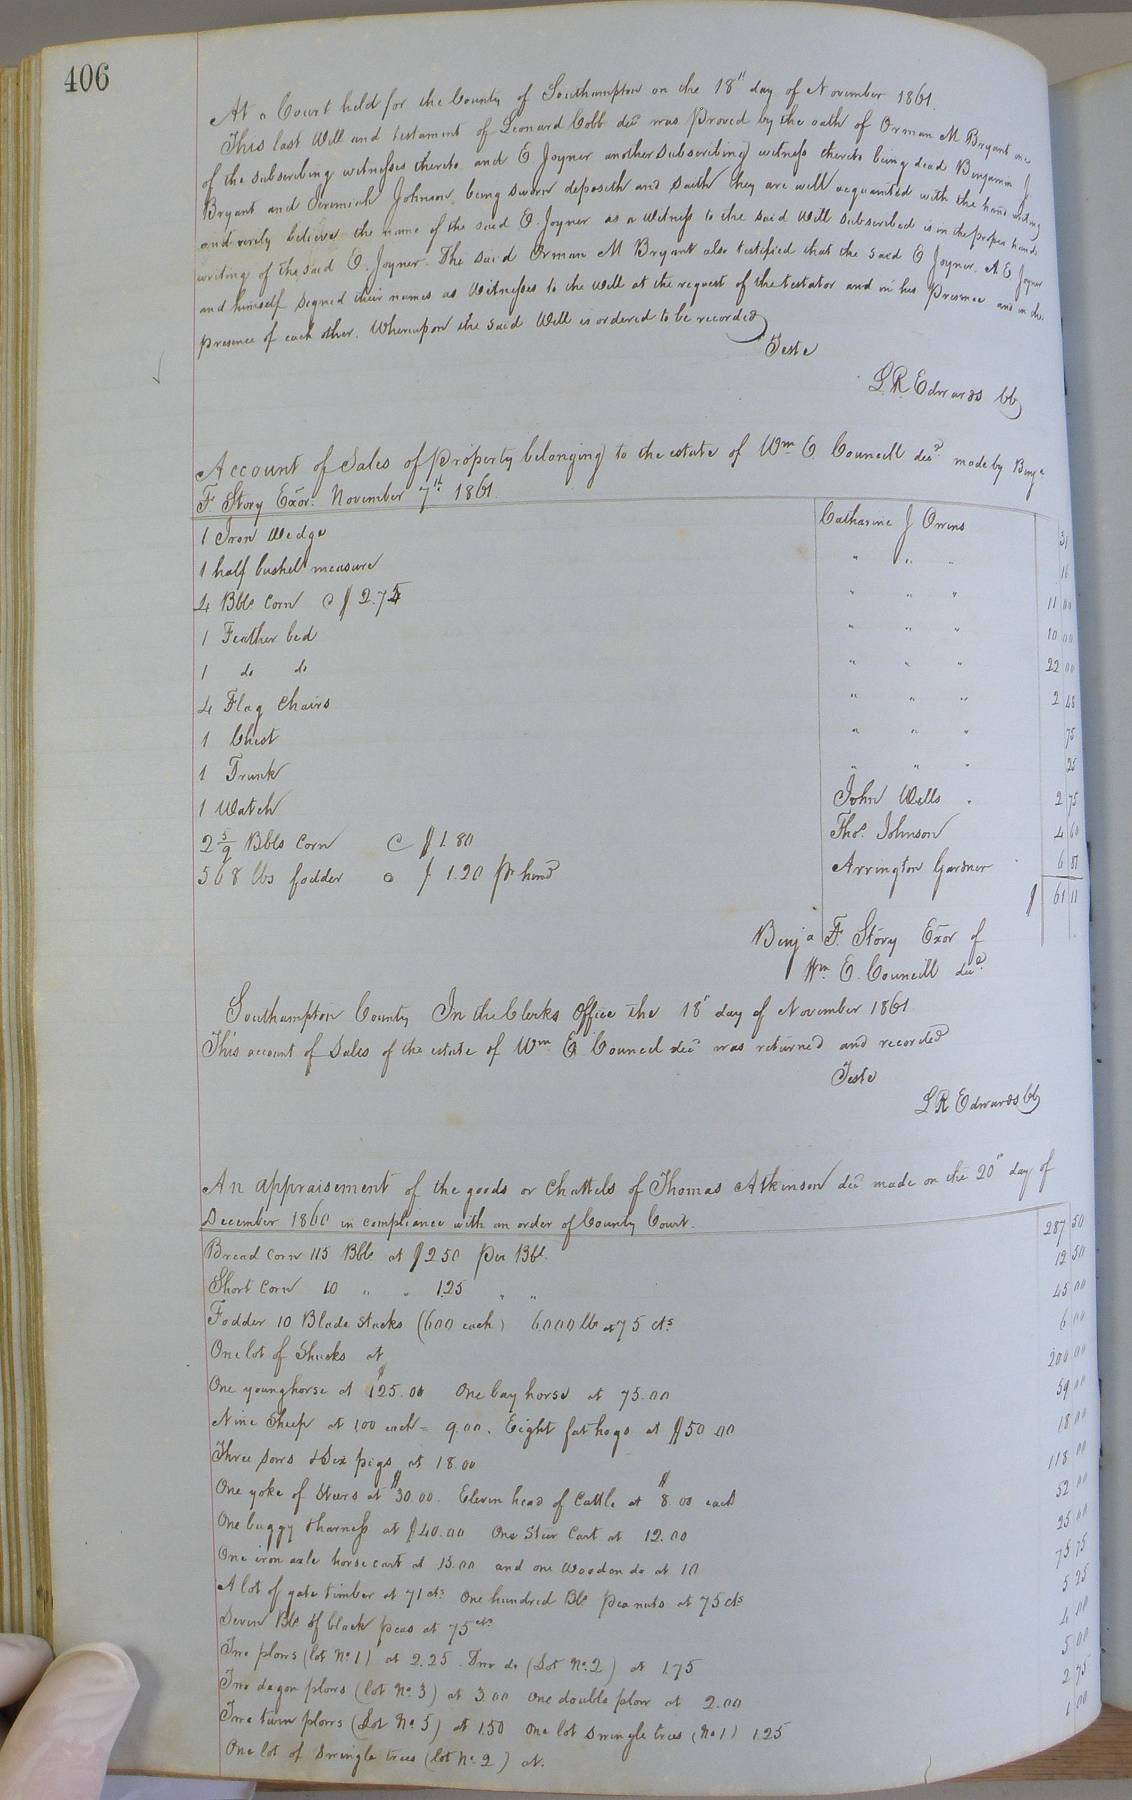 406
At a Court held for the County of Southampton on the 18" day of November 1861.
This last Will and testament of Leonard Cobb decd was proved by the oath of Orman M Bryant one
of the subscribing witnesses thereto and E Joyner another subscribing witness thereto being dead Benjamin J
Bryant and Jeremiah Johnson being sworn deposeth and saith they are well acquainted with the hand writing
and verily believe the name of the said E. Joyner as a witness to the said Will subscribed is in the proper hand
writing of the said E. Joyner. The said Orman M Bryant also testified that the said E Joyner. A E Joyner
and himself signed their names as Witnesses to the Will at the request of the testator and in his presence and in the
presence of each other. Whereupon the said Will is ordered to be recorded
Teste
L. R. Edwards CC
Account of Sales of property belonging to the estate of Wm E Councill decd made by Benja
F Story Exor. November 7th 1861
1 Iron Wedge Catharine J Owens 31
1 half bushel measure " " " 16
4 Bbls Corn @ $ 2.75 " " " 11 00
1 Feather bed " " " 10 00
1 do do " " " 22 00
4 Flag Chairs " " " 2 48
1 Chest " " " 75
1 Trunk " " " 25
1 Watch John Wells 2 75
2 5/9 Bbls Corn @ $ 1.80 Thos Johnson 4 60
568 lbs fodder @ $ 1.20 pr hund Arrington Gardner 6 81
$ 61 11
Benja F. Story Exor of
Wm E. Councill decd
Southampton County In the Clerks Office the 18" day of November 1861
This account of Sales of the estate of Wm E Councel decd was returned and recorded
Teste
L R Edwards CC
An appraisement of the goods or Chattels of Thomas Atkinson decd made on the 20" day of
December 1860 in compliance with an order of County Court.
Bread corn 115 Bbls at $2.50 per Bbl. 287 50
Short Corn 10 " " 1.25 " " 12 50
Fodder 10 Blade stacks (600 each) 6000 lbs at 75 cts 45 00
One lot of Shucks at 6 00
One young horse at $125.00 One bay horse at 75.00 200 00
Nine Sheep at 1.00 each = 9.00. Eight fat hogs at $50.00 59 00
Three sows & Six pigs at 18.00 18 00
One yoke of Steers at $30.00. Eleven head of Cattle at $8.00 each 118 00
One buggy & harness at $40.00 One Steer Cart at 12.00 52 00
One iron axle horse cart at 15.00 and one wooden do at 10 25 00
A lot of gate timber at 71 cts One hundred Bls pea nuts at 75 cts 75 75
Seven Bls of black peas at 75 cts 5 25
Two plows (lot No 1) at 2.25. Two do (Lot No. 2) at 1.75 4 00
Two dagon plows (lot No 3) at 3.00 One double plow at 2.00 5 00
Two turn plows (Lot No. 5) at 1.50 One lot swingle trees (No 1) 1.25 2 75
One lot of Swingle trees (lot No. 2) at. 1 00